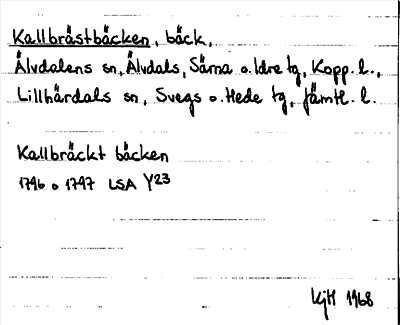 Kallbrästbäcken, bäck,
Älvdalens sn, Älvdals, Särna o. Idre tg, Kopp. l.,
Lillhärdals sn, Svegs o. Hede tg, Jämtl. l.
Kallbräckt bäcken
1796 o 1797 LSA Y23
KjH 1968